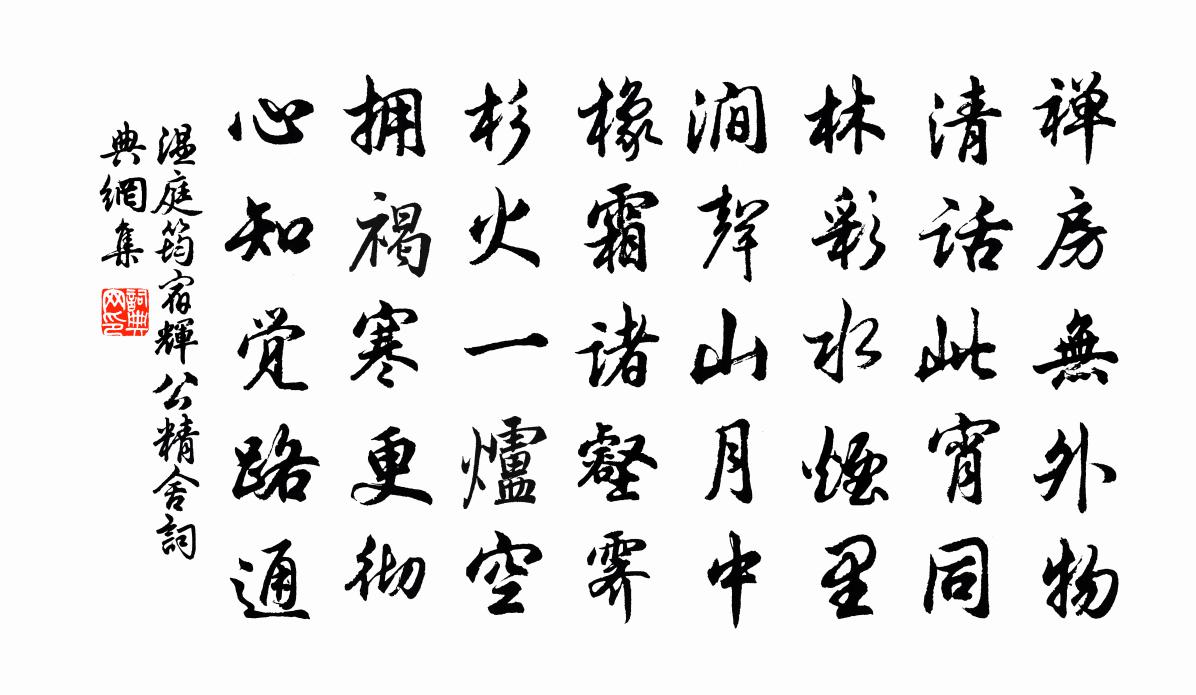 禅房無外物
清話此宵同
林彩水煙里
澗聲山月中
橡霜諸壑霽
杉火一爐空
拥褐寒更彻
心知觉路通
温庭筠宿輝公精舍詞
典網集
詞典
网印